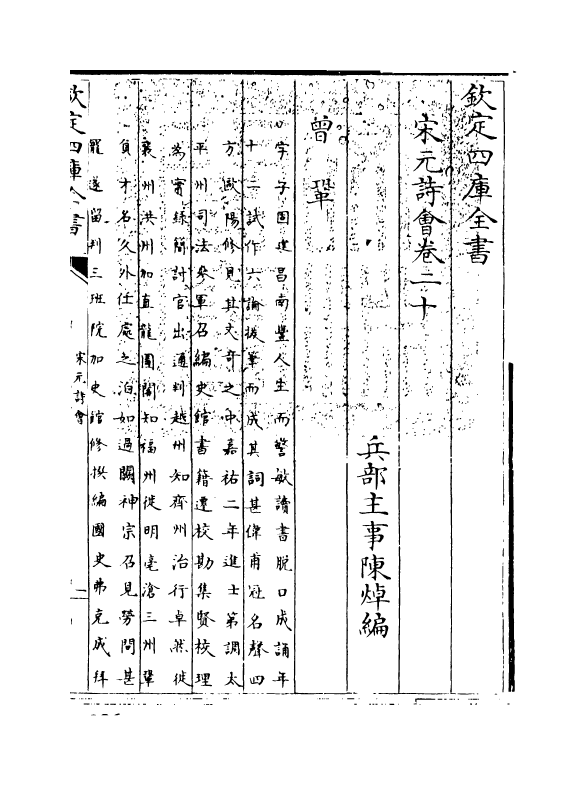 欽定四庫全書
宋元詩會卷二十
兵部主事陳焯編
曾鞏
字子固建昌南豐人生而警敏讀書脫口成誦年
十二試作六論援筆而成其詞甚偉甫冠名聲四
方歐陽修見其文奇之中嘉祐二年進士第調太
平州司法參軍召編史館書籍遷校勘集賢校理
為實錄簡討官出通判越州知齊州治行卓然徙
襄州洪州加直龍圖閣知福州徙明亳滄三州鞏
負才名久外任處之泊如過闕神宗召見勞問甚
寵遂留判三班院加史館修撰編國史弗克成拜
欽定四庫全書
宋元詩會